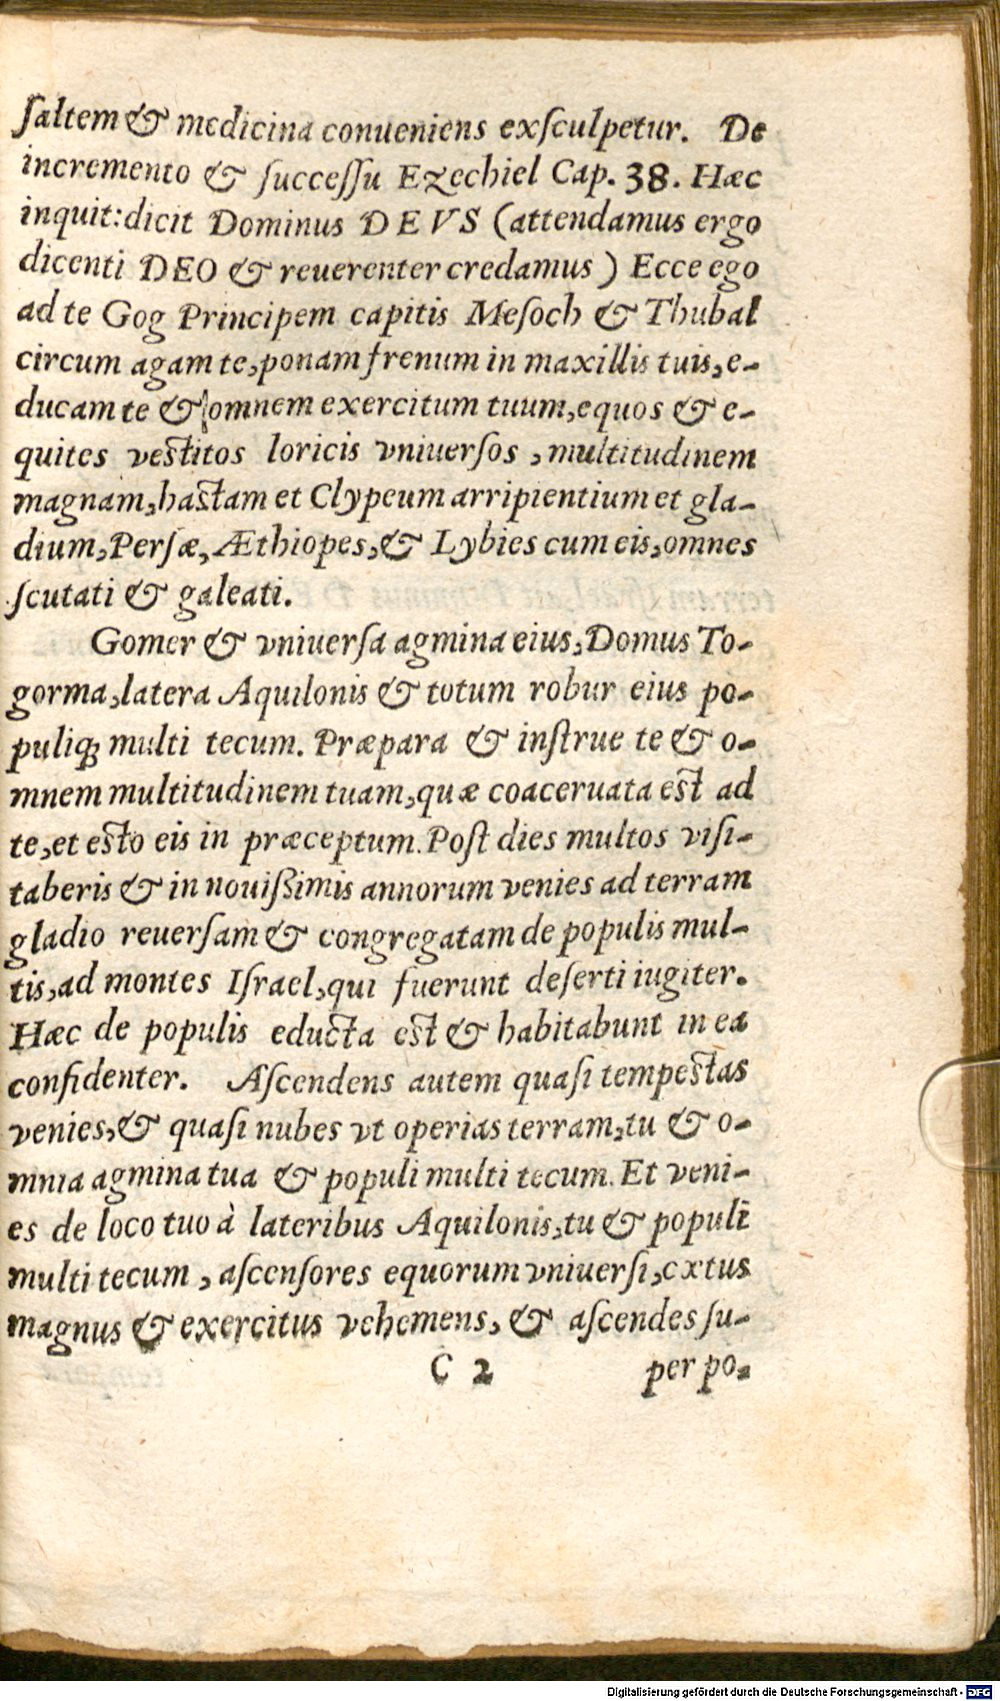 ſaltem & medicina conueniens exſculpetur. De
incremento & ſucceſſu Ezechiel Cap. 38. Hæc
inquit: dicit Dominus DEVS (attendamus ergo
dicenti DEO & reuerenter credamus) Ecce ego
ad te Gog Principem capitis Meſoch & Thubal
circum agam te, ponam frenum in maxillis tuis, e-
ducam te & omnem exercitum tuum, equos & e-
quites veſtitos loricis vniuerſos, multitudinem
magnam, haſtam et Clypeum arripientium et gla-
dium, Perſæ, Æthiopes, & Lybies cum eis, omnes
ſcutati & galeati.
Gomer & vniuerſa agmina eius, Domus To-
gorma, latera Aquilonis & totum robur eius po-
puliq; multi tecum. Præpara & inſtrue te & o-
mnem multitudinem tuam, quæ coaceruata eſt ad
te, et eſto eis in præceptum. Poſt dies multos viſi-
taberis & in nouiſſimis annorum venies ad terram
gladio reuerſam & congregatam de populis mul-
tis, ad montes Iſrael, qui fuerunt deſerti iugiter.
Hæc de populis educta eſt & habitabunt in ea
confidenter. Aſcendens autem quaſi tempeſtas
venies, & quaſi nubes vt operias terram, tu & o-
mnia agmina tua & populi multi tecum. Et veni-
es de loco tuo à lateribus Aquilonis, tu & populi
multi tecum, aſcenſores equorum vniuerſi, cxtus
magnus & exercitus vehemens, & aſcendes ſu-
C 2 per po-
Digitalisierung gefördert durch die Deutsche Forschungsgemeinschaft - DFG